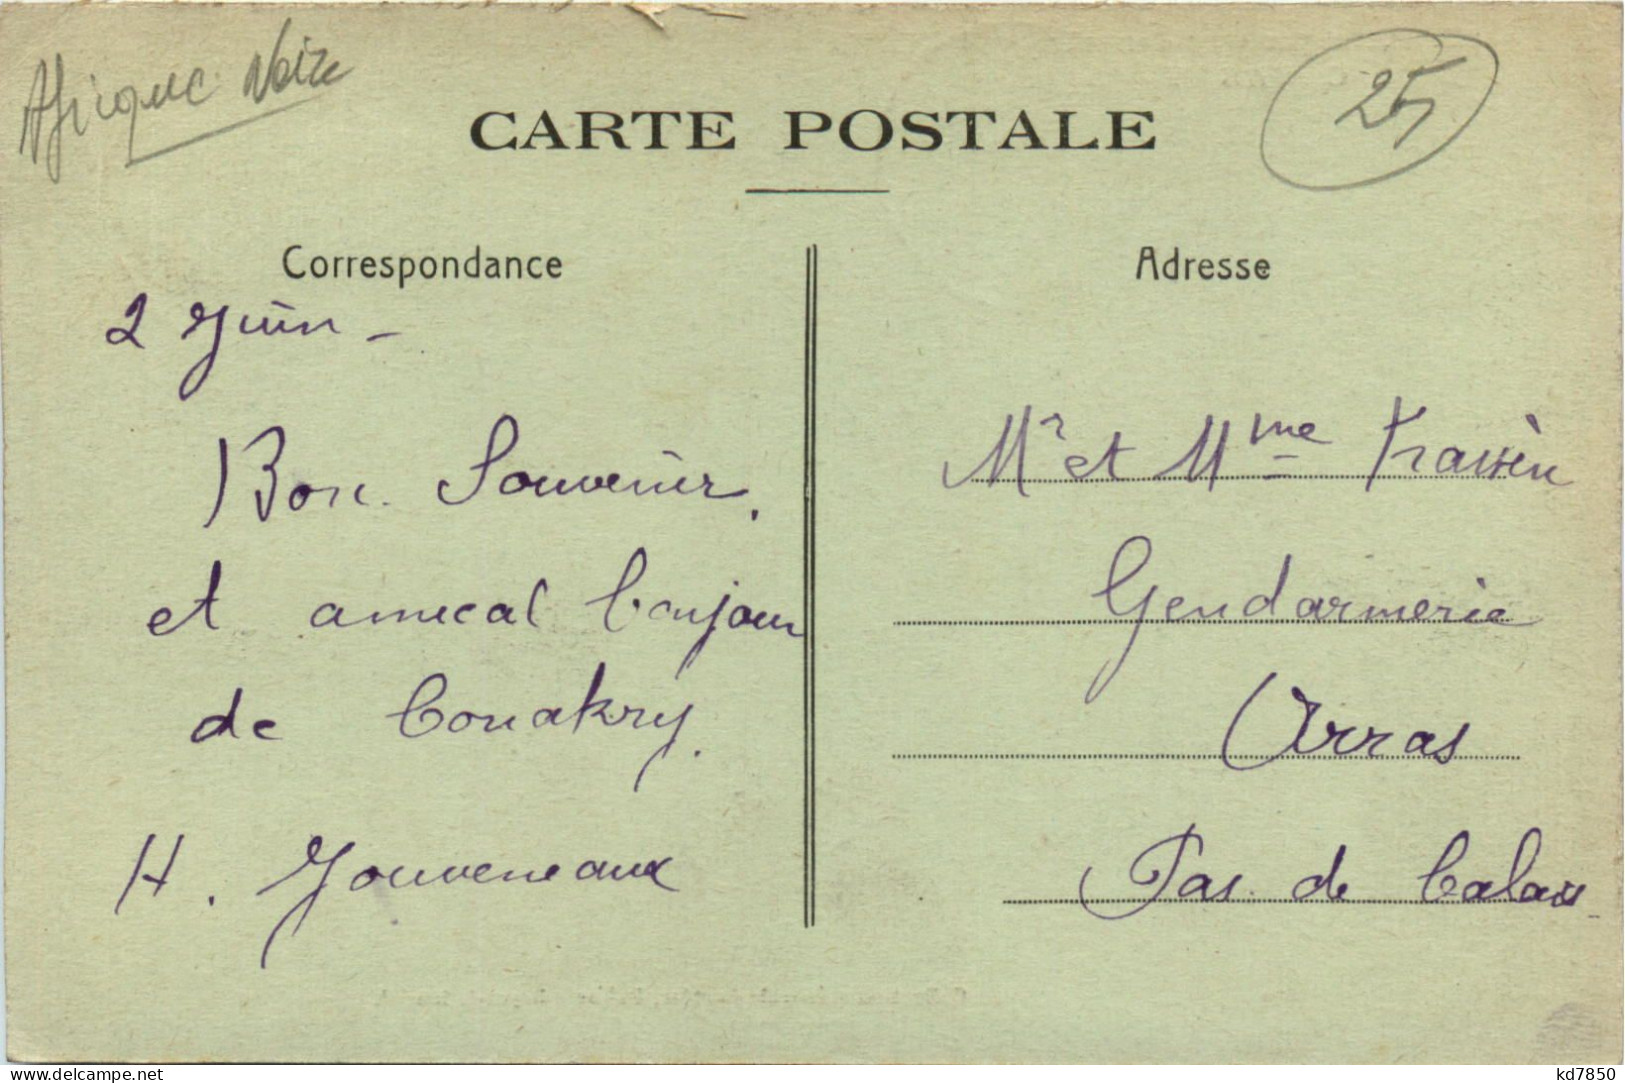 Afrique Noire
25
CARTE POSTALE
Correspondance
2 Juin -
Bon Souvenir.
et amical bonjour
de Conakry.
H. Jouveneaux
Adresse
Mr et Mme
Gendarmerie
Arras
Pas de Calais
www.delcampe.net
kd7850